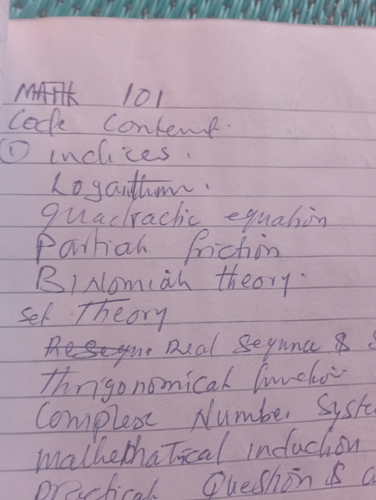 MATH 101
Code Content.
① indices.
Logarithm.
quadractic equation
Partial friction
Binomial theory.
Set Theory
Real Sequnce &
Thrigonomical function
Complex Number Syste
mathematical induction
practical Question &